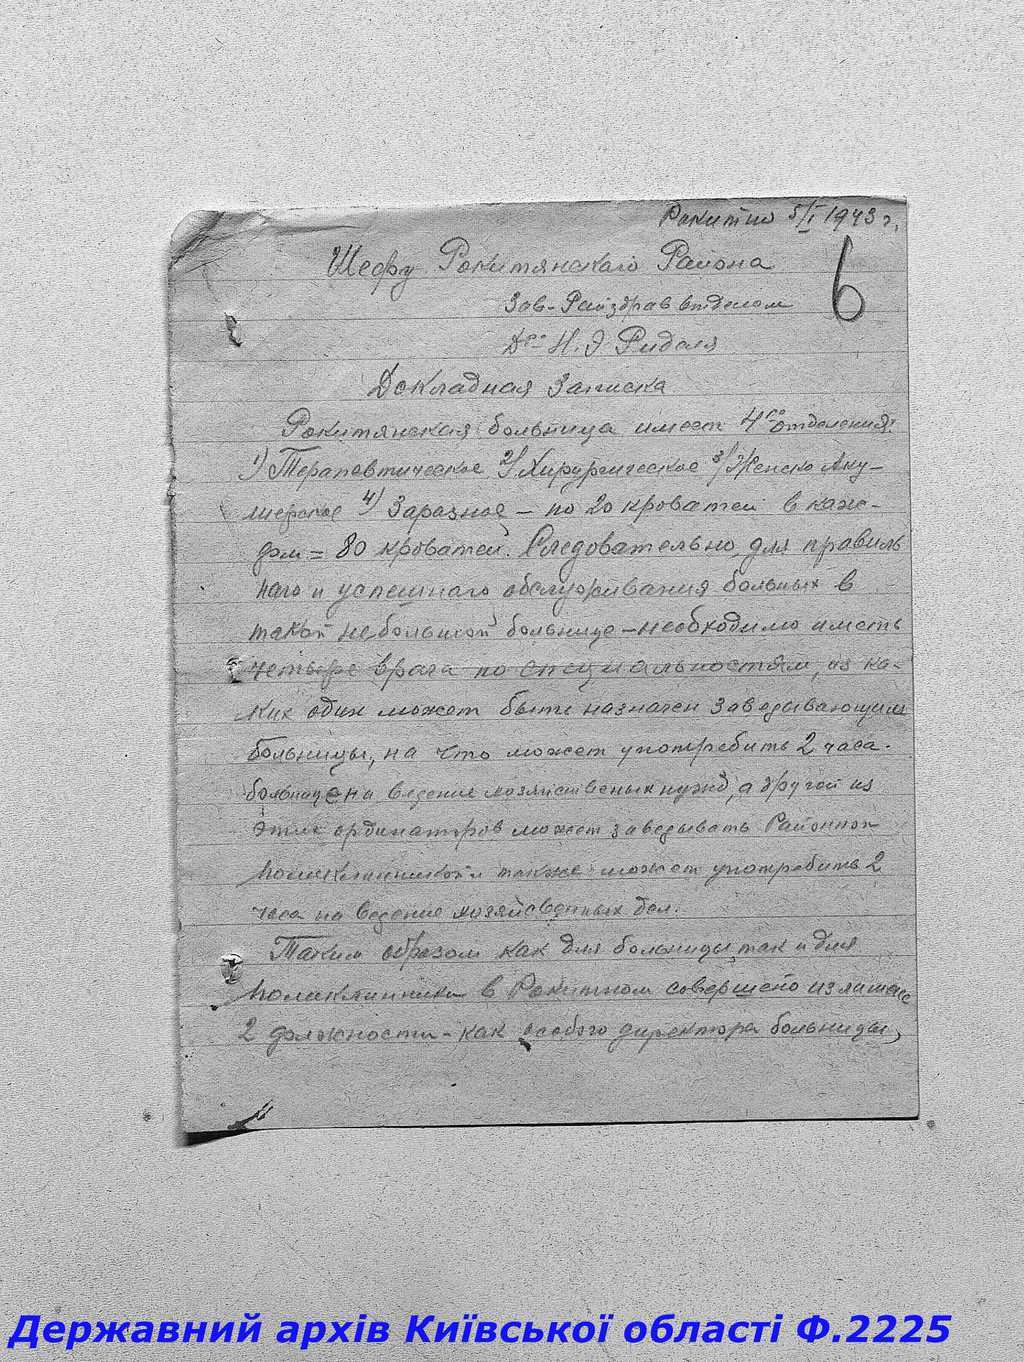 Рокитно 5/I 1943 г.
6
Шефу Рокитянского Района
Зав-Райздравотделом
Д-ра Н. Э Риделя
Докладная Записка
Рокитянская больница имеет 4ре отделения:
1) Терапевтическое 2) Хирургическое 3) Женско Аку-
шерское 4) Заразное – по 20 кроватей в каж-
дом = 80 кроватей. Следовательно для правиль
ного и успешного обслуживания больных в
такой небольшой больнице – необходимо иметь
четыре врача по специальностям, из ка-
ких один может быть назначен Заведывающим
больницы, на что может употребить 2 часа.
на ведение хозяйственых нужд, а другой из
этих ординаторов может заведывать Районной
поликлинникой и также может употребить 2
часа на ведение дел.
Таким образом как для больницы так и для
поликлинники в Рокитном совершено излишнее
2 должности – как особого директора больницы,
Державний архів Київської області Ф.2225